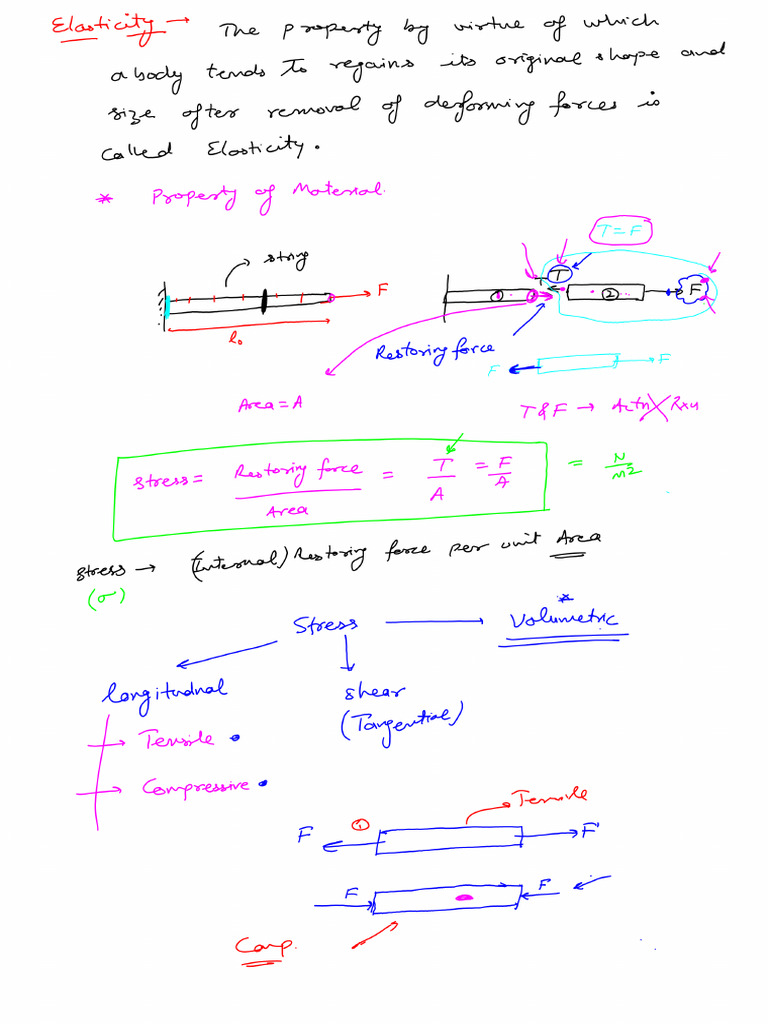 Elasticity → The property by virtue of which
a body tends to regains its original shape and
size after removal of deforming forces is
called Elasticity.
* Property of Material.
T = F
string
T
F
F
① ②
l₀
Restoring force
F F
Area = A
T & F → Actn
stress = Restoring force / Area = T/A = F/A = N/m²
stress → (Internal) Restoring force per unit Area
(σ)
Stress → Volumetric *
longitudnal shear
(Tangential)
→ Tensile
→ Compressive
Tensile
①
F F
F F
Comp.